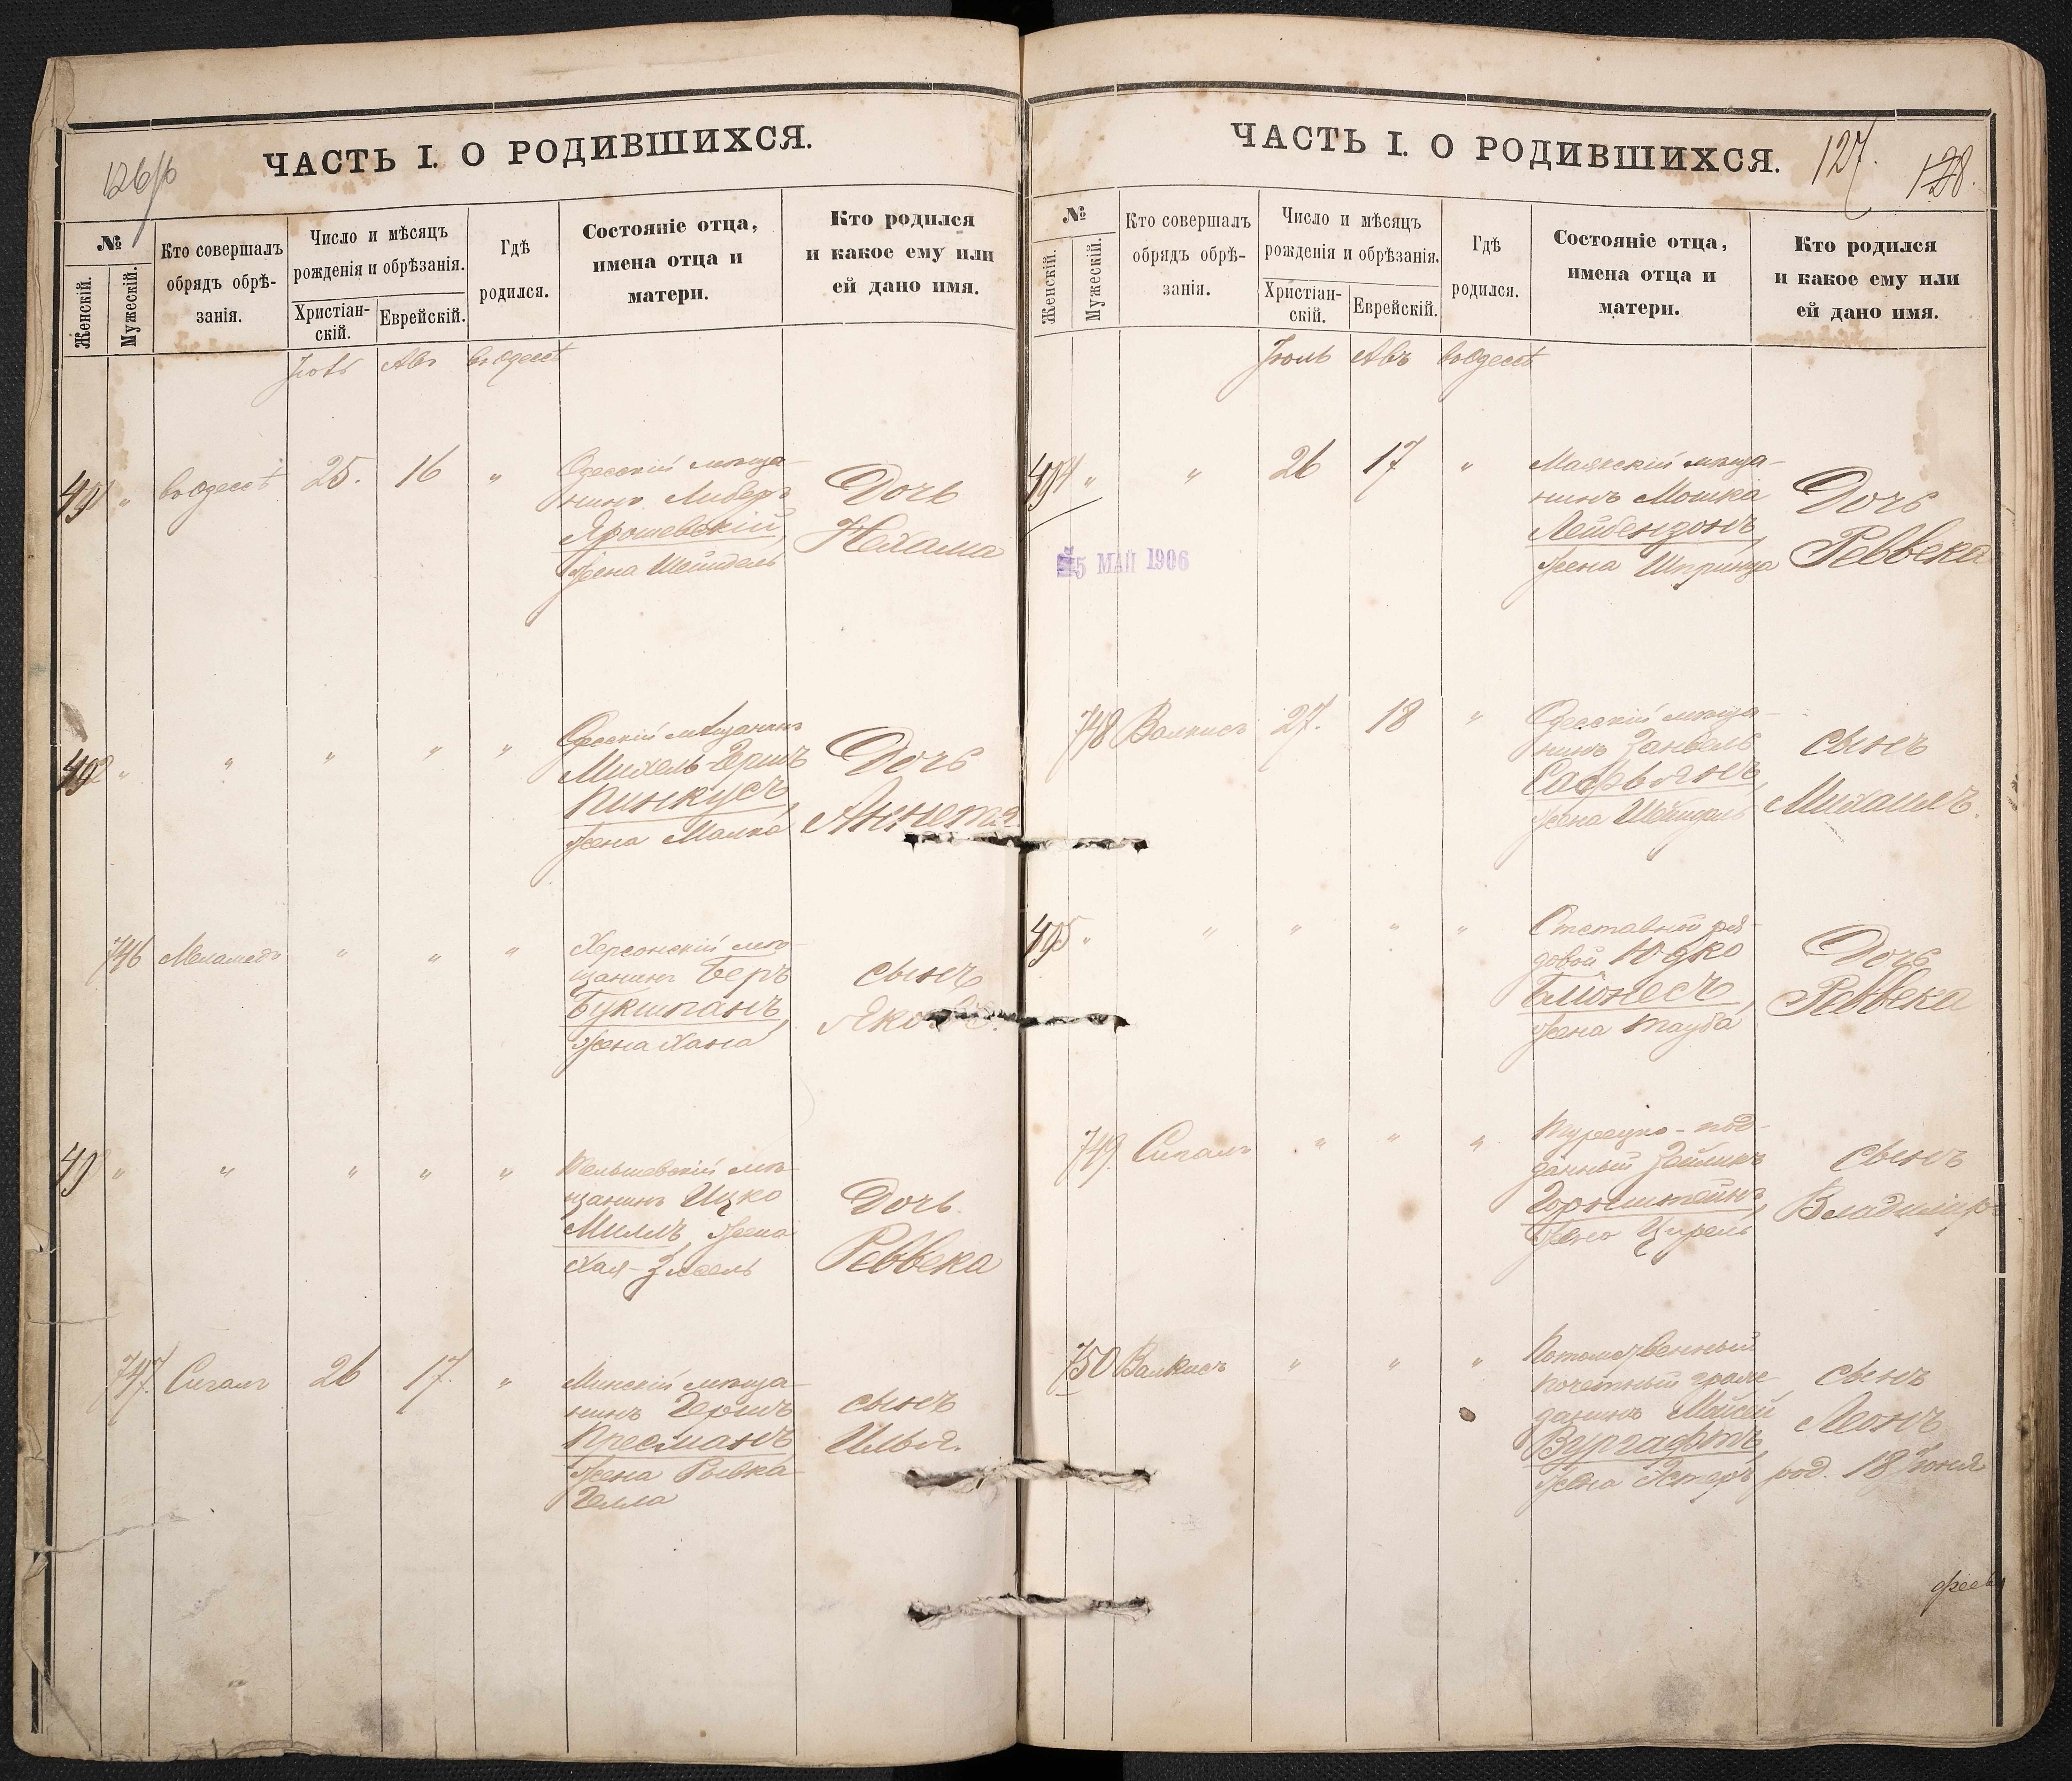 126/б
ЧАСТЬ I. О РОДИВШИХСЯ.
№
Женскій.
Мужескій.
Кто совершалъ
обрядъ обрѣ-
занія.
Число и мѣсяцъ
рожденія и обрѣзанія.
Христіан-
скій.
Еврейскій.
Гдѣ
родился.
Состояніе отца,
имена отца и
матери.
Кто родился
и какое ему или
ей дано имя.
Авъ въ Одессѣ
491 " въ Одессѣ 25. 16 "
Одесскій мѣща-
нинъ Либеръ
Ярошевскій,
жена Шейндель
Дочь
Нехама
492 " " " " "
Одесскій мѣщанинъ
Михель-Гершъ
Пинкусъ,
жена Малка
Дочь
Аннета
746 Меламедъ " " "
Херсонскій мѣ-
щанинъ Беръ
Букшпанъ,
жена Хана
сынъ
Яковъ.
" " " " "
мѣ-
щанинъ Ицко
Миллъ, жена
Хая-Зисель
Дочь
Реввека
747. Сигалъ 26 17. "
Минскій мѣща-
нинъ Гершъ
Пресманъ
жена Рывка-
Гелла
сынъ
Илья.
ЧАСТЬ I. О РОДИВШИХСЯ.
127.
128.
№
Женскій.
Мужескій.
Кто совершалъ
обрядъ обрѣ-
занія.
Число и мѣсяцъ
рожденія и обрѣзанія.
Христіан-
скій.
Еврейскій.
Гдѣ
родился.
Состояніе отца,
имена отца и
матери.
Кто родился
и какое ему или
ей дано имя.
Іюль Авъ въ Одессѣ
494 " " 26 17 "
5 МАЙ 1906
Маякскій мѣща-
нинъ Мошка
Лейбензонъ,
жена Шпринца
Дочь
Реввека
748 Валкисъ 27. 18 "
Одесскій мѣща-
нинъ Занвель
Сафьянъ,
жена Шейндель
сынъ
Михаилъ.
495 " " " " "
Отставной ря-
довой Юдко
Блюнесъ,
жена Тауба
Дочь
Реввека
749. Сигалъ " " "
Турецко-под-
данный Зейликъ
Горнштейнъ,
жена Цирель
сынъ
Владиміръ
750 Валкисъ " " "
Потомственный
почетный граж-
данинъ Мойсей
Вургафтъ,
жена Эстеръ
сынъ
Леонъ
род. 18 Іюня